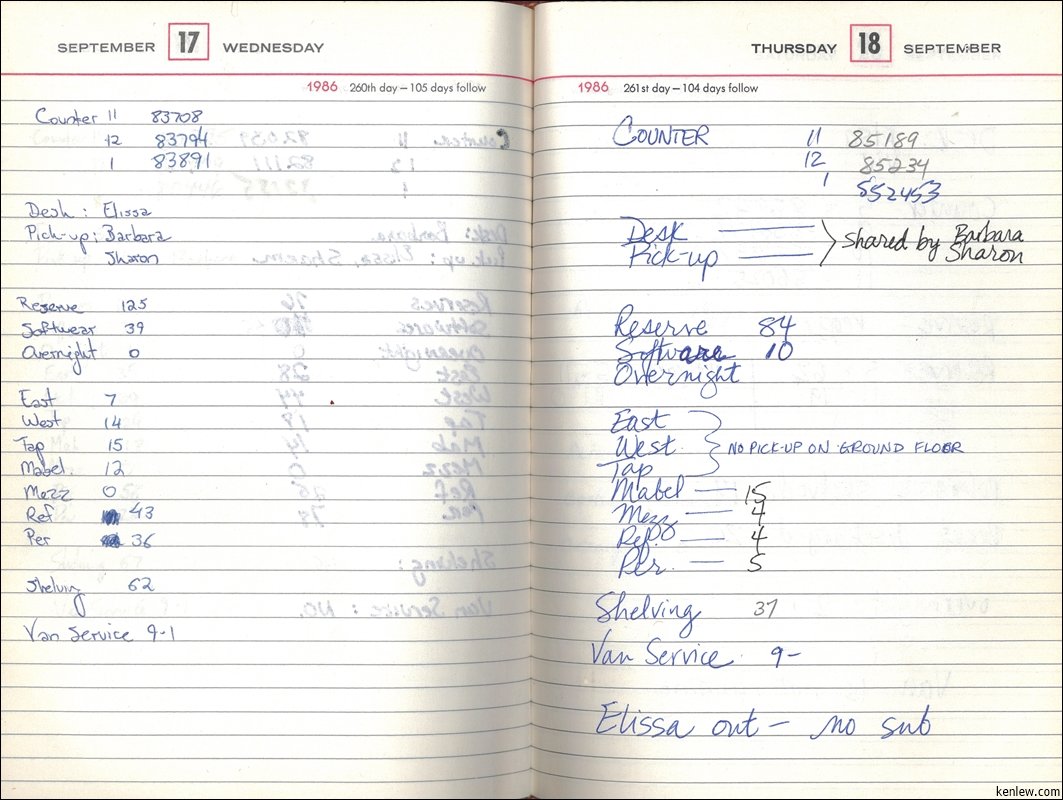 SEPTEMBER 17 WEDNESDAY
1986 260th day — 105 days follow
Counter 11 83708
12 83794
1 83891
Desk : Elissa
Pick-up : Barbara
Sharon
Reserve 125
Softwear 39
Overnight 0
East 7
West 14
Tap 15
Mabel. 12
Mezz 0
Ref 43
Per 36
Shelving 62
Van Service 9-1
THURSDAY 18 SEPTEMBER
1986 261st day — 104 days follow
COUNTER 11 85189
12 85234
1 852453
Desk
Pick-up
shared by Barbara
Sharon
Reserve 84
Software 10
Overnight
East
West
Tap
NO PICK-UP ON GROUND FLOOR
Mabel — 15
Mezz — 4
Ref. — 4
Per. — 5
Shelving 37
Van Service 9-
Elissa out — no sub
kenlew.com